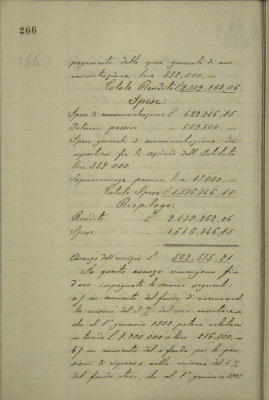 266
pagamento delle spese generali di am-
ministrazione lire 332.000, —
Totale Rendite £ 2,039,262,06
Spese:
Spese di amministrazione £ 622,946,85
Interessi passivi " 609,800, —
Spese generali di amministrazione da
ripartirsi fra le aziende dell'Istituto
lire 332.000 —
Sopravvenienze passive lire 12000, —
Totale Spese £ 1,576,746,85
Riepilogo:
Rendite £ 2,039,262,06
Spese " 1,576,746,85
Avanzo dell'esercizio £
Su questo avanzo rimangono fin
d'ora impegnate le somme seguenti:
a) in aumento del fondo di riserva
la misura del 3 % del suo montare
che al 1° gennaio 1902 potrà calcolarsi
in tondo £ 7.200.000 = lire 216.000, —
b) in aumento del fondo per le pen-
sioni di riposo nella misura del 5 %
del fondo stesso, che al 1° gennaio 1902